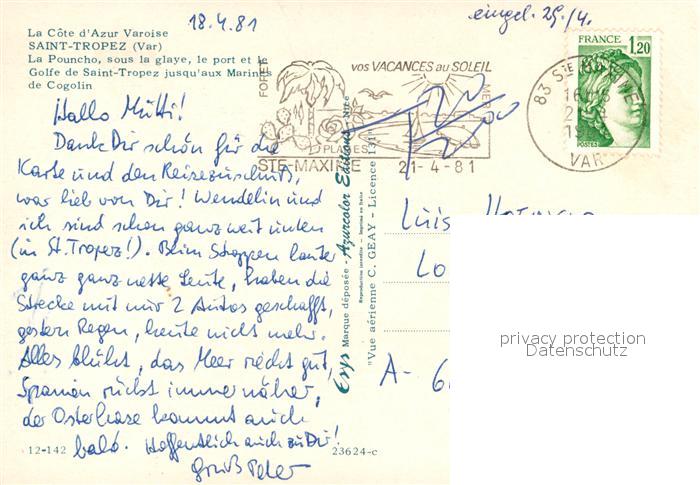 18.4.81
eingel. 25./4.
La Côte d'Azur Varoise
SAINT-TROPEZ (Var)
La Pouncho, sous la glaye, le port et le
Golfe de Saint-Tropez jusqu'aux Marines
de Cogolin
FORET
vos VACANCES au SOLEIL
MER
PLAGES
STE-MAXIME 21-4-81
FRANCE 1,20
POSTES
83 STE MAXIME
VAR
Hallo Mutti!
Dank Dir schön für die
Karte und den Reisezuschuß,
war lieb von Dir! Wendelin und
ich sind schon ganz weit unten
(in St. Tropez!). Beim Stoppen lauter
ganz ganz nette Leute, haben die
Strecke mit nur 2 Autos geschafft,
gestern Regen, heute nicht mehr.
Alles blüht, das Meer riecht gut,
Spanien rückt immer näher,
der Osterhase kommt auch
bald. Hoffentlich auch zu Dir!
Gruß Peter
12-142
23624-c
Erys Marque déposée - Azurcolor Editions Nice
Reproduction interdite - Imprimé en Italie
"Vue aérienne C. GEAY - Licence 131"
Luis
Lo
A - 6
privacy protection
Datenschutz